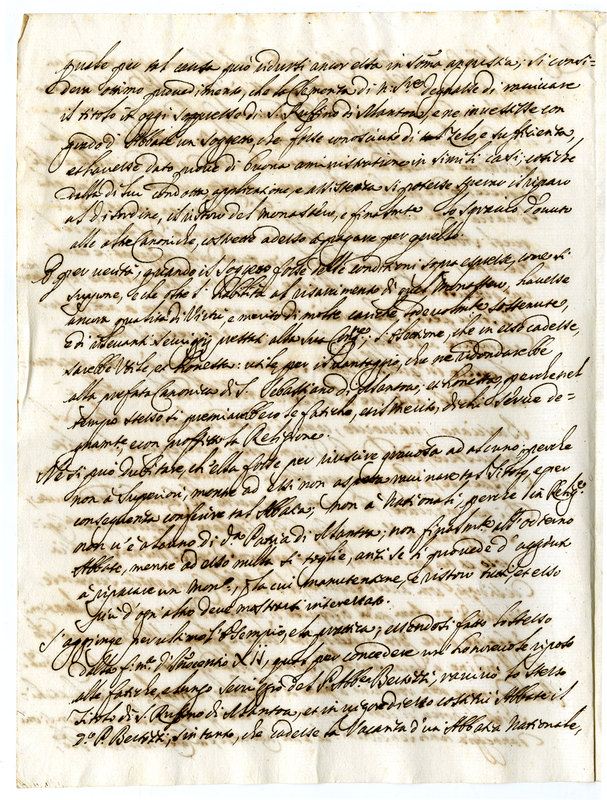 quale per tal causa può ridursi ancor essa in soma angustia; si consi=
dera ottimo provedimento, che la Clemenza di N. Sre degnasse di ravivare
il titolo oggi soppresso di S. Ruffino di Mantova, e ne investisse con
grado d'Abbate un soggetto, che fosse conosciuto di tal Zelo, e sufficienza,
et havesse dato prove di buona aministratione in simili casi, cosiche
dalla di lui condotta, applicatione, e assistenza si potesse sperare il riparo
al disordine, il ristoro del monastero, e finalmte lo sgravio dovuto
alle altre Canoniche, costrette adesso a pagare per quello.
E per verità, quando il Soggetto fosse delle conditioni sopra espresse, come si
suppone, e che oltre l'habilità al risarcimento di quel Monastero, havesse
ancora qualità di Virtù, e merito di molte cariche lodevolmte sostenute,
e di rilevanti servigij prestati alla sua Congne, l'elettione, che in esso cadesse,
sarebbe Utile, et honesta: utile, per il vantaggio, che ne ridondarebbe
alla prefata Canonica di S. Sebastiano di Mantova; et honesta, perche nel
tempo stesso si premiarebbero le fatiche, et il merito, di chi serve de=
gnamte, e con profitto la Religione.
Ne si può dubitare, ch'ella fosse per riuscire gravosa ad alcuno; perche
non a' superiori, mentre ad essi non aspetta ravivare tal Titolo, e per
conseguenza conferire tal Abbatia; non a' Nationali, perche in Religne
non v'è alcuno di da Patria di Mantova; non finalmte all' odierno
Abbate, mentre ad esso nulla si toglie, anzi se li provede d'aggiuto
a riparare un Monro, la cui manutenzione, e ristoro
più d'ogn'altro deve mostrarsi interessato.
S'aggiunge per ultimo l'esempio, e la prattica, essendosi fatto lo stesso
dalla f. me. di Innocentio XII, quale per concedere un honorevole riposo
alle fatiche, e lungo servigio del P. Abbe Berzetti, ravivò lo stesso
Titolo di S. Ruffino di Mantova, et in vigor di esso costituì Abbate il
do P. Berzetti, sin tanto, che cadesse la Vacanza d'un Abbatia Nationale,